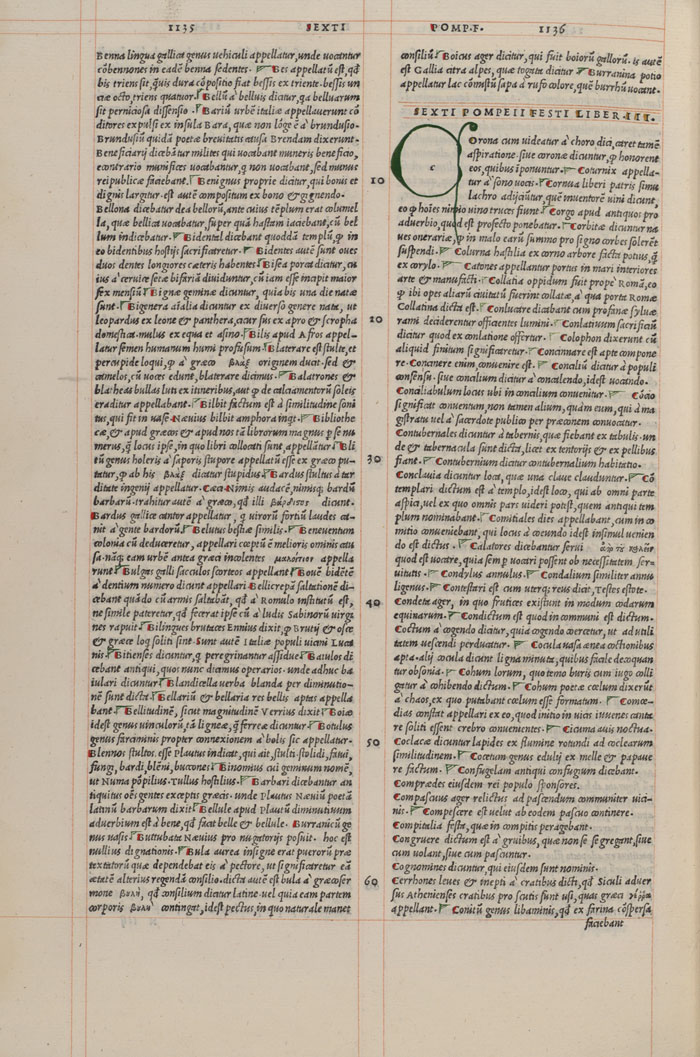 1135 SEXTI
Benna lingua gallica genus uehiculi appellatur, unde uocantur
cōbennones in eadē benna sedentes. Bes appellatū est, qđ
bis triens sit, quis dura cōpositio fiat bessis ex triente. bessis un
ciæ octo, triens quatuor. Bellū a' belluis dicitur, qa belluarum
sit perniciosa dissensio. Bariū urbē italiæ appellauerunt cō
ditores expulsi ex insula Bara, quæ non lōge ē a' brundusio.
Brundusiū quidā poetæ breuitatis causa Brendam dixerunt.
Beneficiarij dicebātur milites qui uacabant muneris beneficio,
econtrario munifices uocabantur, q non uacabant, sed munus
reipublicæ faciebant. Benignus proprie dicitur, qui bonus et
dignis largitur. est autē compositum ex bono & gignendo.
Bellona dicebatur dea bellorū, ante cuius tēplum erat columel
la, quæ bellica uocabatur, super quā hastam iaciebant, cū bel
lum indicebatur. Bidental dicebant quoddā templū, ꝙ in
eo bidentibus hostijs sacrificaretur. Bidentes autē sunt oues
duos dentes longiores cæteris habentes. Bisea porca dicitur, cu
ius a' ceruice setæ bifariā diuiduntur, cū iam esse incipit maior
sex mensiū. Bignæ geminæ dicuntur, quia bis una die natæ
sunt. Bigenera aīalia dicuntur ex diuerso genere nata, ut
leopardus ex leone & panthera, cicur sus ex apro & scropha
domestica. mulus ex equa et asino. Bilis apud Afros appel-
latur semen humanum humi profusum. Blaterare est stulte, et
percupide loqui, ꝙ a' græco βλάξ originem ducit. sed &
camelos, cū uoces edunt, blaterare dicimus. Balatrones &
blatheas bullas luti ex itineribus, aut ꝙ de calciamentorū soleis
eraditur appellabant. Bilbit factum est a' similitudine soni
tus, qui fit in uase. Næuius bilbit amphora inqt. Bibliothe
cæ, & apud græcos & apud nos tā librorum magnus p̱ se nu
merus, q̄ locus ipse, in quo libri collocati sunt, appellātur. Bli
tū genus holeris a' saporis stupore appellatū esse ex græco pu-
tatur, ꝙ ab his βλάξ dicatur stupidus. Bardus stultus a' tar
ditate ingenij appellatur. Cæci. Nimis audacē, nimisq; bardū
barbarū. trahitur autē a' græco, qđ illi βάρδισορ dicunt.
Bardus gallice cantor appellatur, q uirorū fortiū laudes ca-
nit a' gente bardorū. Belutus bestiæ similis. Beneuentum
colonia cū deduceretur, appellari cœptū ē melioris ominis cau
sa. nāq; eam urbē antea græci incolentes appella
runt. Bulgas galli sacculos scorteos appellant. Bouē bidētē
a' dentium numero dicunt appellari. Bellicrepā saltationē di-
cebant quādo cū armis saltabāt, qđ a' Romulo institutū est,
ne simile pateretur, qđ fecerat ipse cū a' ludis Sabinorū uirgi
nes rapuit. Bilingues brutaces Ennius dixit, ꝙ Brutij & osce
& græce loq̇ soliti sint. Sunt autē Italiæ populi uicini Luca
nis. Bitienses dicuntur, q̇ peregrinantur assidue. Baiulos di
cebant antiqui, quos nunc dicimus operarios. unde adhuc ba
iulari dicuntur. Blandicella uerba blanda per diminutio-
nē sunt dicta. Bellariū & bellaria res bellis aptas appella
bant. Bellitudinē, sicut magnitudinē Verrius dixit. Boiæ
idest genus uinculorū tā ligneæ, q̄ ferreæ dicuntur. Botulus
genus farciminis propter connexionem a' bolis sic appellatur.
Blennos stultos esse Plautus indicat, qui ait, stulti stolidi, fatui,
fungi, bardi, blēni, buccones. Binomius cui geminum nomē,
ut Numa pōpilius. Tullus hostilius. Barbari dicebantur an
tiquitus oēs gentes exceptis græcis. unde Plautus Næuiū poetā
latinū barbarum dixit. Bellule apud Plautū diminutiuum
aduerbium est a' bene, qđ facit belle & bellule. Burranicū ge
nus uasis. Buttubata Næuius pro nugatorijs posuit. hoc est
nullius dignationis. Bula aurea insigne erat puerorū præ
textatorū quæ dependebat eis a' pectore, ut significaretur eā
ætatē alterius regendā consilio. dicta autē est bula a' græco ser
mone βουλή, qđ consilium dicitur latine uel quia eam partem
corporis βουλή contingat, idest pectus, in quo naturale manet
10
20
30
40
50
60
POMP. F. 1136
consiliū. Boicus ager dicitur, qui fuit boiorū gallorū. is autē
est Gallia citra alpes, quæ togata dicitur. Burranina potio
appellatur lac cōmistū sapa a' rufo colore, quē burrhū uocant.
SEXTI POMPEII FESTI LIBER III.
COrona cum uideatur a' choro dici, caret tamē
c
aspiratione. siue coronæ dicuntur, ꝙ honorent
eos, quibus iponuntur. Coturnix appella-
tur a' sono uocis. Cornua liberi patris simu
lachro adijciūtur, quē inuentorē uini dicunt,
eo ꝙ hoīes nimio uino truces fiunt. Corgo apud antiquos pro
aduerbio, quod est profecto ponebatur. Corbitæ dicuntur na
ues onerariæ, ꝙ in malo earū summo pro signo corbes solerēt
suspendi. Colurna hastilia ex corno arbore facta potius, q̄
ex corylo. Catones appellantur portus in mari interiores
arte & manufacti. Collatia oppidum fuit prope Romā, eo
ꝙ ibi opes aliarū ciuitatū fuerint collatæ, a' qua porta Romæ
Collatina dicta est. Conlucare dicebant cum profanæ syluæ
rami deciderentur officientes lumini. Conlatiuum sacrificiū
dicitur quod ex conlatione offertur. Colophon dixerunt cū
aliquid finitum significaretur. Concinnare est apte compone
re. Concinere enim, conuenire est. Conciliū dicitur a' populi
consensu. siue concilium dicitur a' concilendo, idest uocando.
Conciliabulum locus ubi in concilium conuenitur. Cōtio
significat conuentum, non tamen alium, quàm eum, qui a' ma
gistratu uel a' sacerdote publico per præconem conuocatur.
Contubernales dicuntur a' tabernis, quæ fiebant ex tabulis. un
de & tabernacula sunt dicta, licet ex tentorijs & ex pellibus
fiant. Contubernium dicitur contubernalium habitatio.
Conclauia dicuntur loca, quæ una claue clauduntur. Cō
templari dictum est a' templo, idest loco, qui ab omni parte
aspici, uel ex quo omnis pars uideri potest, quem antiqui tem
plum nominabant. Comitiales dies appellabant, cum in co
mitio conueniebant, qui locus a' coeundo idest insimul uenien
do est dictus. Calatores dicebantur serui
quod est uocare, quia semp̱ uocari possent ob necessitatem ser-
uitutis. Condylus annulus. Condalium similiter annu
li genus. Contestari est cum uterq; reus dicit, Testes estote.
Condeta ager, in quo frutices existunt in modum codarum
equinarum. Condictum est quod in communi est dictum.
Coctum a' cogendo dicitur, quia cogendo coercetur, ut ad utili
tatem uescendi perducatur. Cocula uasa ænea coctionibus
apta. alij cocula dicunt ligna minuta, quibus facile decoquan
tur obsonia. Cohum lorum, quo temo buris cum iugo colli
gatur a' cohibendo dictum. Cohum poetæ cœlum dixerūt
a' chaos, ex quo putabant cœlum esse formatum. Comœ-
dias constat appellari ex eo, quod initio in uicis iuuenes canta
re soliti essent crebro conuenientes. Cicuma auis noctua.
Coclacæ dicuntur lapides ex flumine rotundi ad coclearum
similitudinem. Cocetum genus edulij ex melle & papaue
re factum. Confugelam antiqui confugium dicebant.
Comprædes eiusdem rei populo sponsores.
Compascuus ager relictus ad pascendum communiter uici-
nis. Compescere est uelut ab eodem pascuo continere.
Compitalia festa, quæ in compitis peragebant.
Congruere dictum est a' gruibus, quæ non se segregant, siue
cum uolant, siue cum pascuntur.
Cognomines dicuntur, qui eiusdem sunt nominis.
Cerrhones leues & inepti a' cratibus dicti, qđ Siculi aduer
sus Athenienses cratibus pro scutis sunt usi, quas græci
appellant. Comitū genus libaminis, qđ ex farina cōspersa
faciebant